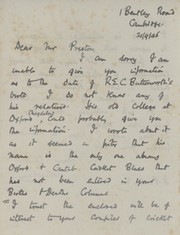 1 Bentley Road
Cambridge.
21/9/66
Dear Mr Preston
I am sorry I am
unable to give you information
as to the date of R.S.C. Butterworth's
I do not know any of
his relatives. His old college at
Oxford (Magdalen) could probably give you
the information. I wrote about it
as it seemed a pity that his
name is the only one among
Oxford & Cantab. Cricket Blues that
has not been entered in your
Births & Deaths Column.
I trust the enclosed will be of
interest to your Compiler of Cricket